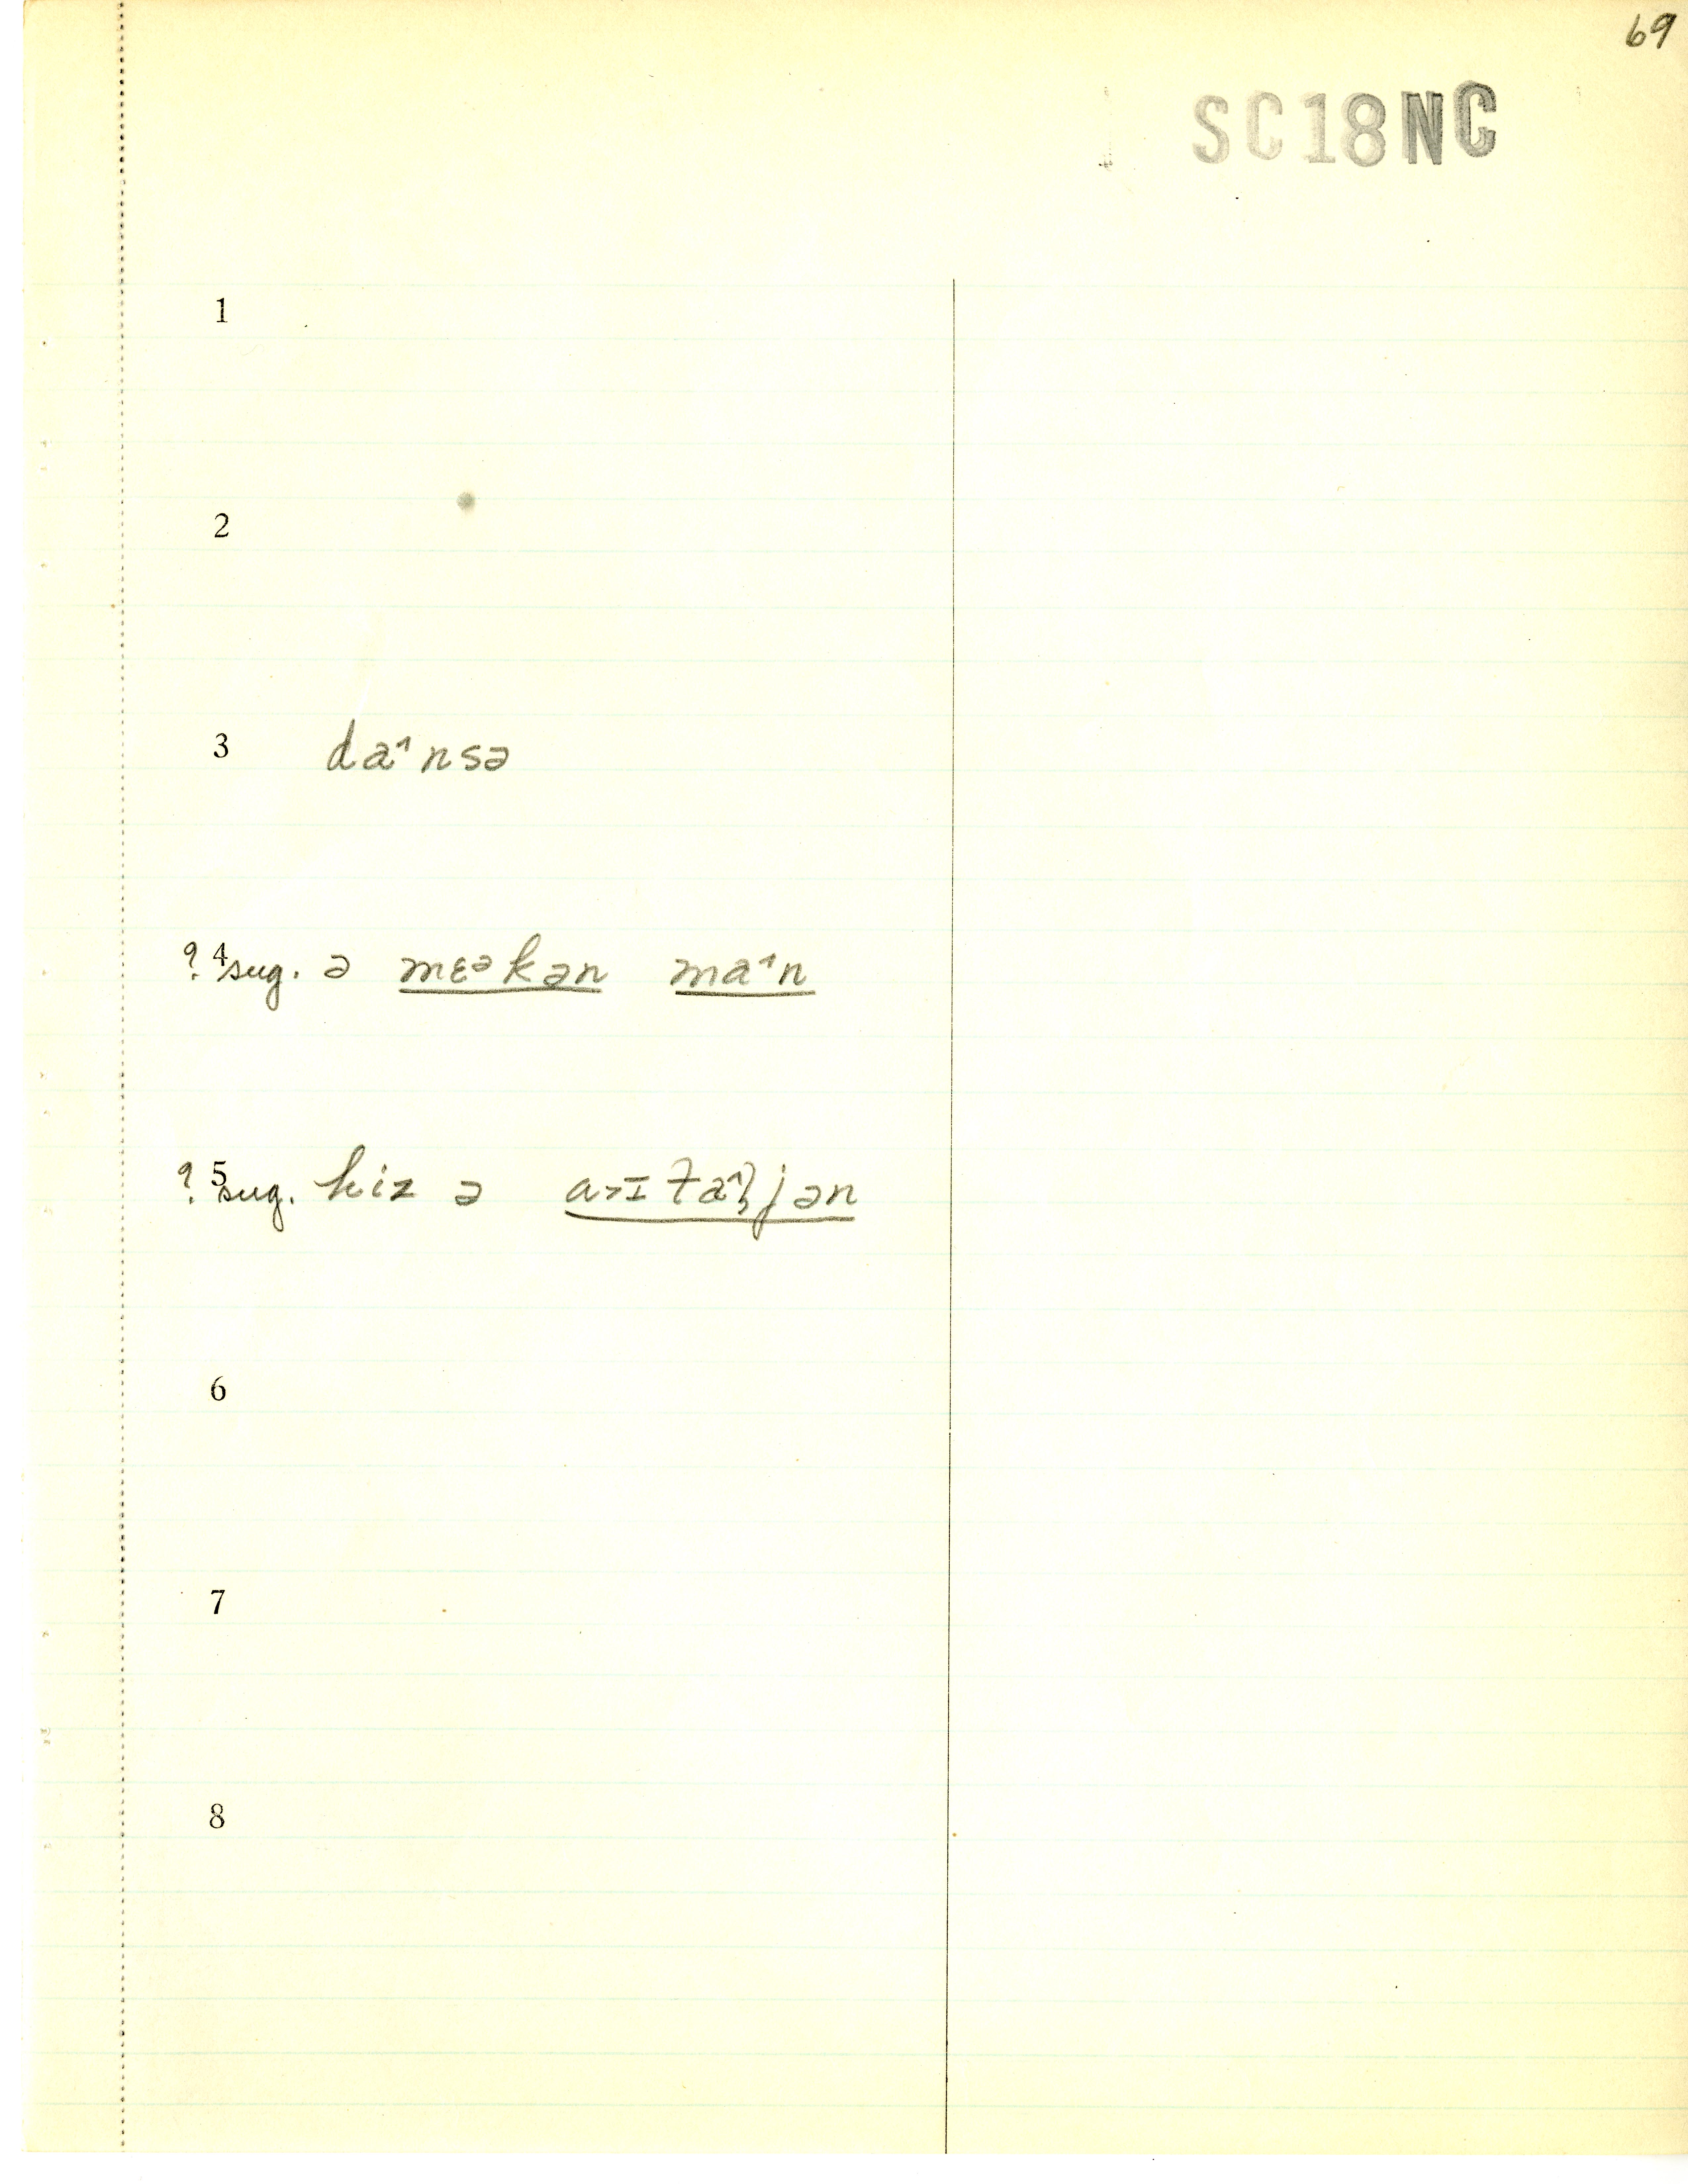 69
SC18NC
1
2
3 da˄nsə
? 4 sug. ə mɛəkən ma˄n
? 5 sug. hiz ə a˃ɪta˄ljən
6
7
8